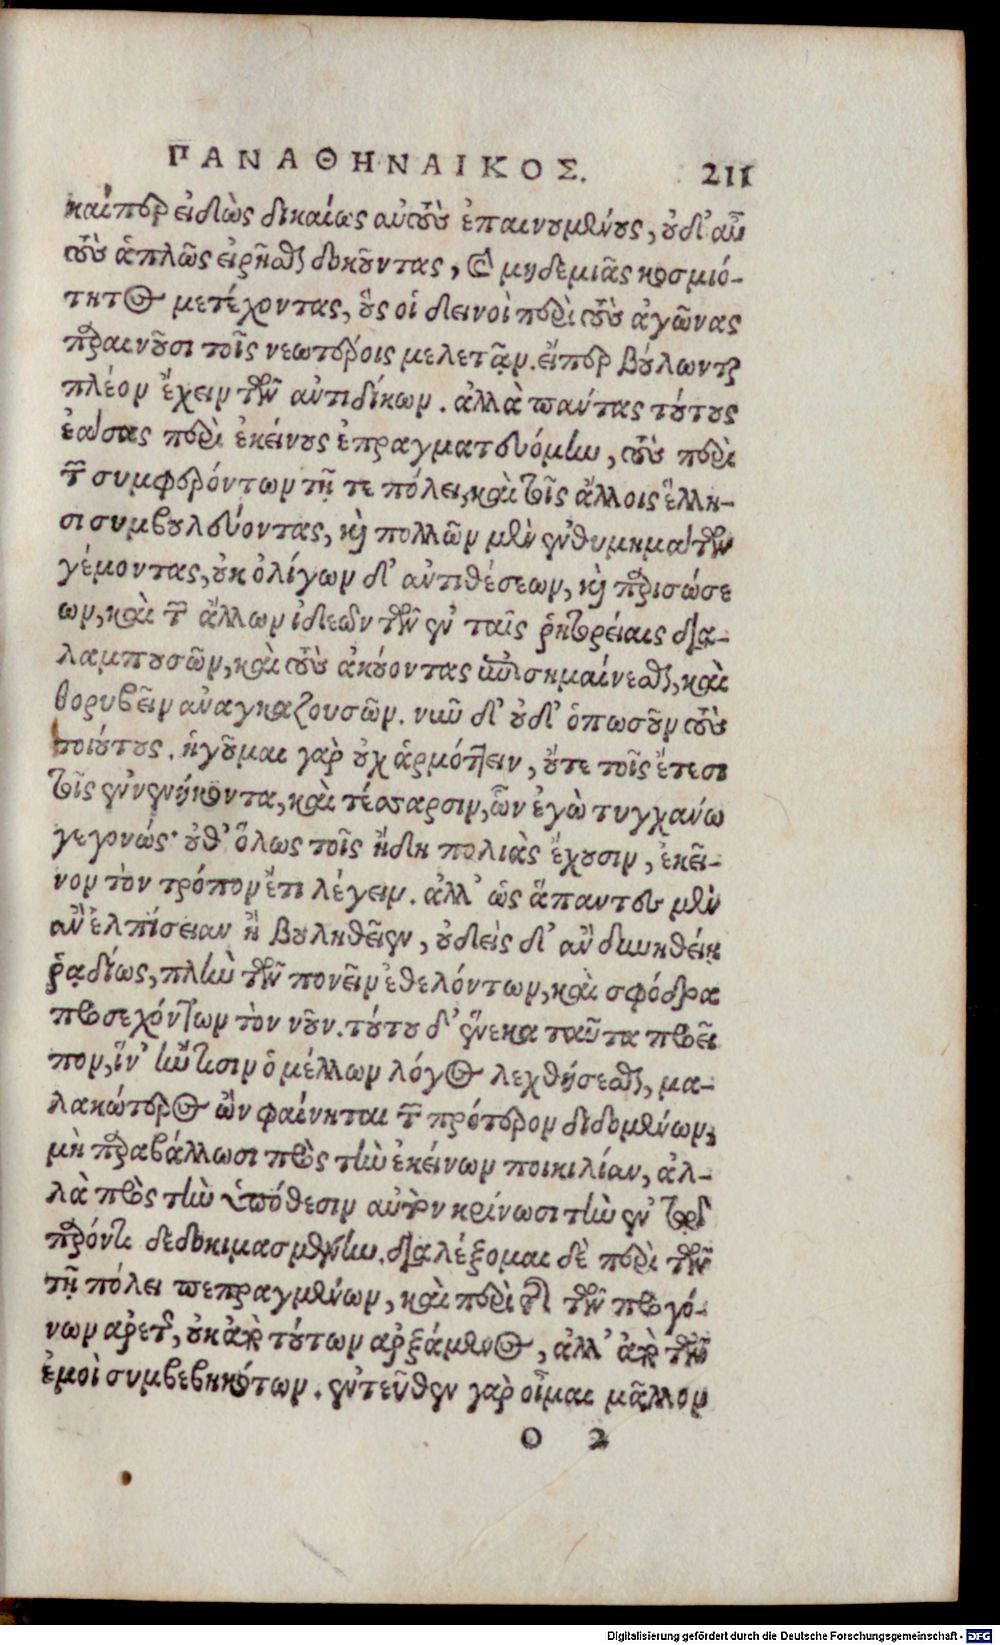 ΠΑΝΑΘΗΝΑΙΚΟΣ. 211
καίπερ εἰδὼς δικαίως αὐτοὺς ἐπαινουμένους, οὐδ' αὖ
τοὺς ἁπλῶς εἰρῆσθαι δοκοῦντας, καὶ μηδεμιᾶς κοσμιό-
τητος μετέχοντας, οὓς οἱ δεινοὶ περὶ τοὺς ἀγῶνας
παραινοῦσι τοῖς νεωτέροις μελετᾷν. εἴπερ βούλωνται
πλέον ἔχειν τῶν ἀντιδίκων. ἀλλὰ πάντας τούτους
ἐάσας περὶ ἐκείνους ἐπραγματευόμην, τοὺς περὶ
τῶν συμφερόντων τῇ τε πόλει, καὶ τοῖς ἄλλοις ἕλλη-
σι συμβουλεύοντας, καὶ πολλῶν μὲν ἐνθυμημάτων
γέμοντας, οὐκ ὀλίγων δ' ἀντιθέσεων, καὶ παρισώσε
ων, καὶ τῶν ἄλλων ἰδεῶν τῶν ἐν ταῖς ῥητορείαις δια-
λαμπουσῶν, καὶ τοὺς ἀκούοντας ἐπισημαίνεσθαι, καὶ
θορυβεῖν ἀναγκαζουσῶν. νῦν δ' οὐδ' ὁπωσοῦν τοὺς
τοιούτους. ἡγοῦμαι γὰρ οὐχ ἁρμόττειν, οὔτε τοῖς ἔτεσι
τοῖς ἐνενήκοντα, καὶ τέσσαρσιν, ὧν ἐγὼ τυγχάνω
γεγονώς· οὔθ' ὅλως τοῖς ἤδη πολιὰς ἔχουσιν, ἐκεῖ-
νον τὸν τρόπον ἔτι λέγειν. ἀλλ' ὡς ἅπαντες μὲν
ἂν ἐλπίσειαν ἢ βουληθεῖεν, οὐδεὶς δ' ἂν δυνηθείη
ῥᾳδίως, πλὴν τῶν πονεῖν ἐθελόντων, καὶ σφόδρα
προσεχόντων τὸν νοῦν. τούτου δ' ἕνεκα ταῦτα προεῖ
πον, ἵν' ἤν τισιν ὁ μέλλων λόγος λεχθήσεσθαι, μα-
λακώτερος ὢν φαίνηται τῶν πρότερον διδομένων,
μὴ παραβάλλωσι πρὸς τὴν ἐκείνων ποικιλίαν, ἀλ-
λὰ πρὸς τὴν ὑπόθεσιν αὐτὸν κρίνωσι τὴν ἐν τῷ
παρόντι δεδοκιμασμένην. διαλέξομαι δὲ περὶ τῶν
τῇ πόλει πεπραγμένων, καὶ περὶ τῆς τῶν προγό-
νων ἀρετῆς, οὐκ ἀπὸ τούτων ἀρξάμενος, ἀλλ' ἀπὸ τῶν
ἐμοὶ συμβεβηκότων. ἐντεῦθεν γὰρ οἶμαι μᾶλλον
O 2
Digitalisierung gefördert durch die Deutsche Forschungsgemeinschaft - DFG